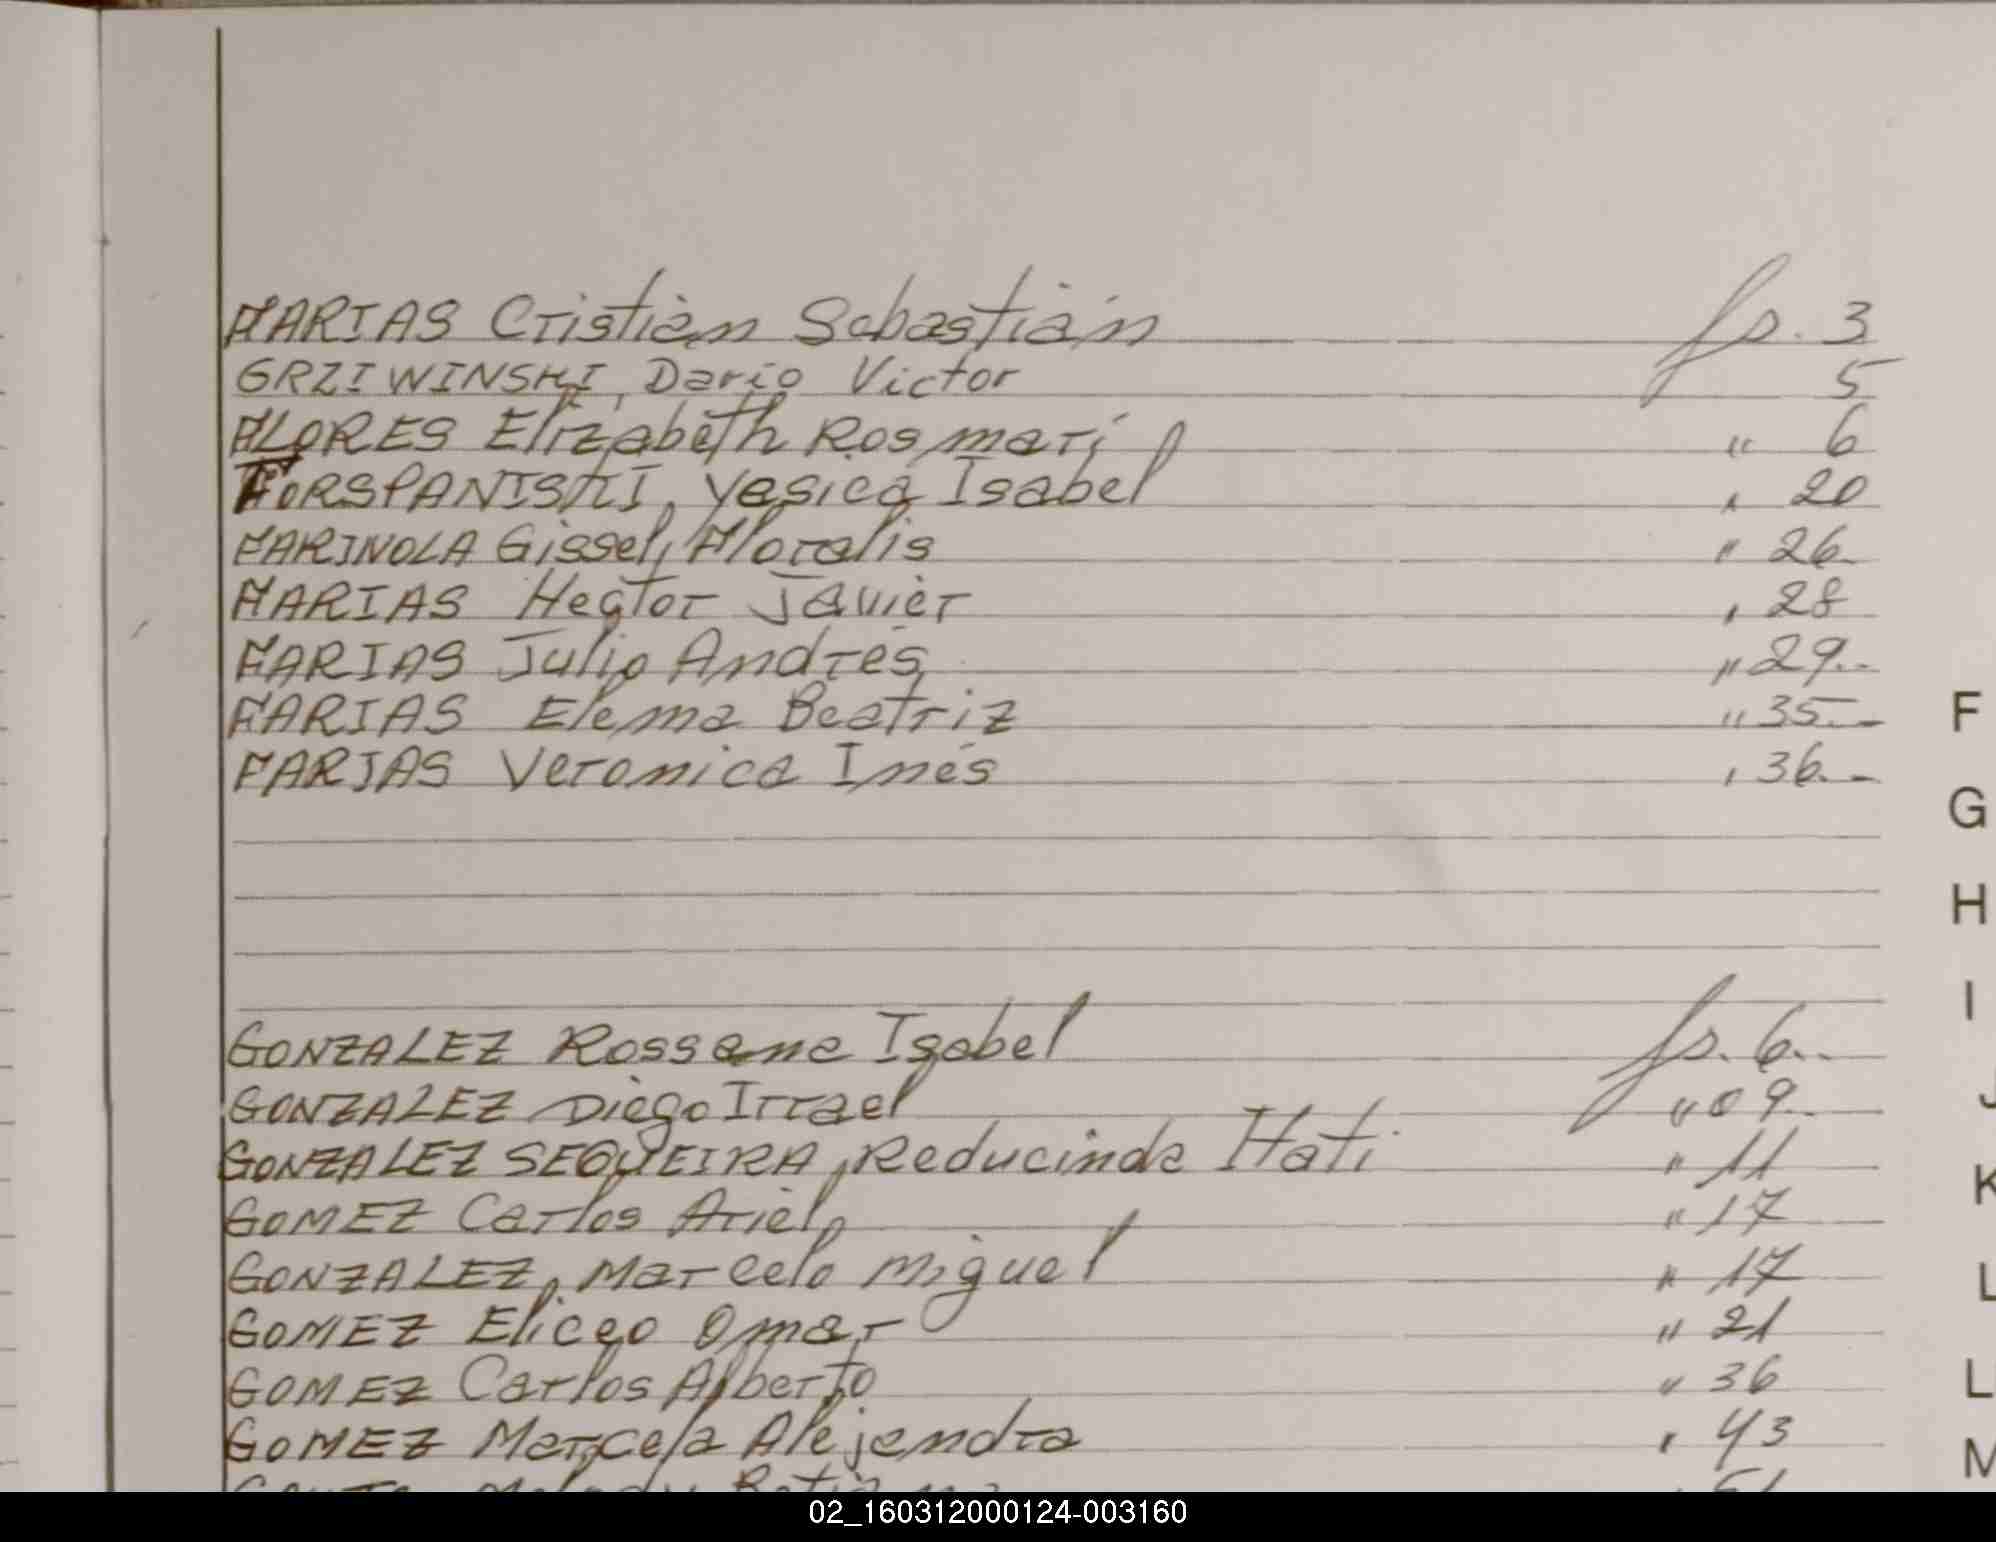 FARIAS Cristian Sebastián fs. 3
GRZIWINSKI, Dario Victor 5
FLORES Elizabeth Rosmari " 6
FORSPANISKI, Yesica Isabel , 20
FARINOLA Gissel, Floralis " 26.
FARIAS Hector Javier , 28
FARIAS Julio Andrés " 29..
FARIAS Elema Beatriz " 35.-
F
FARIAS Veronica Inés , 36.-
G
H
I
GONZALEZ Rossana Isabel fs. 6..
GONZALEZ Diego Irrael " 09..
J
GONZALEZ SEQUEIRA, Reducinda Itati " 11
K
GOMEZ Carlos Ariel " 17
GONZALEZ, Marcelo Miguel " 17
L
GOMEZ Eliceo Omar " 21
GOMEZ Carlos Alberto " 36
GOMEZ Marcela Alejandra , 43
M
51
02_160312000124-003160